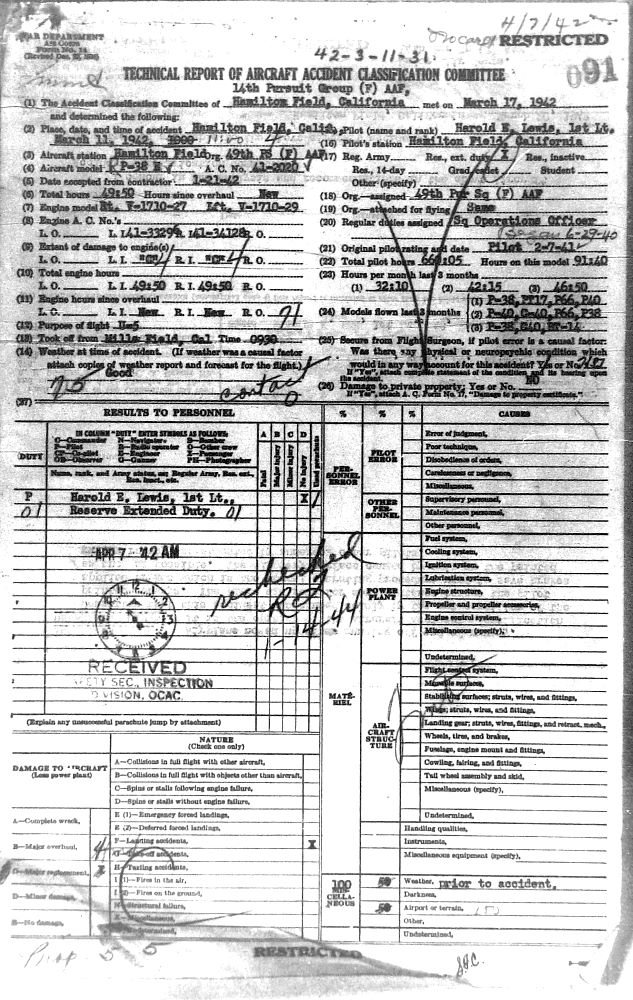 4/7/42
WAR DEPARTMENT
Air Corps
Form No. 14
RESTRICTED
42-3-11-31.
091
TECHNICAL REPORT OF AIRCRAFT ACCIDENT CLASSIFICATION COMMITTEE
14th Pursuit Group (F) AAF,
(1) The Accident Classification Committee of Hamilton Field, California met on March 17, 1942
and determined the following:
(2) Place, date, and time of accident Hamilton Field, Calif.,
March 11, 1942, 11:00
(3) Aircraft station Hamilton Field Org. 49th PS (F) AAF
(4) Aircraft model P-38 E A. C. No. 41-2020
(5) Date accepted from contractor 1-21-42
(6) Total hours 49:50 Hours since overhaul New
(7) Engine model Rt. V-1710-27 Lft. V-1710-29
(8) Engine A. C. No.'s
L. O. L. I. 41-33299 R. I. 41-34128 R. O.
(9) Extent of damage to engine(s)
L. O. L. I. "C" R. I. "C" R. O.
(10) Total engine hours
L. O. L. I. 49:50 R. I. 49:50 R. O.
(11) Engine hours since overhaul
L. O. L. I. New R. I. New R. O.
(12) Purpose of flight U-5 71
(13) Took off from Mills Field, Cal Time 0930
(14) Weather at time of accident. (If weather was a causal factor
attach copies of weather report and forecast for the flight.)
Good
contact
(15) Pilot (name and rank) Harold E. Lewis, 1st Lt.
(16) Pilot's station Hamilton Field, California
(17) Reg. Army Res., ext. duty X Res., inactive
Res., 14-day Grad. cadet Student
Other (specify)
(18) Org.—assigned 49th Pur Sq (F) AAF
(19) Org.—attached for flying Same
(20) Regular duties assigned Sq Operations Officer
6-29-40
(21) Original pilot rating and date Pilot 2-7-41
(22) Total pilot hours 669:05 Hours on this model 91:40
(23) Hours per month last 3 months
(1) 32:10 (2) 42:15 (3) 46:50
(24) Models flown last 3 months
(1) P-38, PT17, P66, P40
(2) P-40, C-40, P66, P38
(3) P-38, C40, BT-14
(25) Secure from Flight Surgeon, if pilot error is a causal factor:
Was there any physical or neuropsychic condition which
would in any way account for this accident? Yes or No.
If "Yes", attach complete statement of the condition and its bearing upon
the accident. NO
(26) Damage to private property; Yes or No.
If "Yes", attach A. C. Form No. 17, "Damage to property certificate."
(27)
RESULTS TO PERSONNEL
DUTY
IN COLUMN "DUTY" ENTER SYMBOLS AS FOLLOWS:
C—Commander N—Navigator B—Bomber
P—Pilot R—Radio operator O—Other crew
CP—Co-pilot E—Engineer X—Passenger
OB—Observer G—Gunner PH—Photographer
Name, rank, and Army status, as: Regular Army, Res. ext.,
Res. inact., etc.
A B C D
Fatal
Major injury
Minor injury
No injury
Used parachute
P Harold E. Lewis, 1st Lt., X
01 Reserve Extended Duty. 01
APR 7 '42 AM
rechecked
R2
1-14-44
RECEIVED
SAFETY SEC., INSPECTION
DIVISION, OCAC.
(Explain any unsuccessful parachute jump by attachment)
DAMAGE TO AIRCRAFT
(Less power plant)
A—Complete wreck,
B—Major overhaul, 4
C—Major replacement, X
D—Minor damage,
E—No damage,
NATURE
(Check one only)
A—Collisions in full flight with other aircraft,
B—Collisions in full flight with objects other than aircraft,
C—Spins or stalls following engine failure,
D—Spins or stalls without engine failure,
E (1)—Emergency forced landings,
E (2)—Deferred forced landings,
F—Landing accidents, X
G—Take-off accidents,
H—Taxiing accidents,
I (1)—Fires in the air,
I (2)—Fires on the ground,
N—Structural failure,
X—Miscellaneous,
Undetermined,
% % % CAUSES
PERSONNEL ERROR
PILOT ERROR
Error of judgment,
Poor technique,
Disobedience of orders,
Carelessness or negligence,
Miscellaneous,
OTHER PERSONNEL
Supervisory personnel,
Maintenance personnel,
Other personnel,
MATÉRIEL
POWER PLANT
Fuel system,
Cooling system,
Ignition system,
Lubrication system,
Engine structure,
Propeller and propeller accessories,
Engine control system,
Miscellaneous (specify),
Undetermined,
AIRCRAFT STRUCTURE
Flight control system,
Movable surfaces,
Stabilizing surfaces; struts, wires, and fittings,
Wings; struts, wires, and fittings,
Landing gear; struts, wires, fittings, and retract. mech.,
Wheels, tires, and brakes,
Fuselage, engine mount and fittings,
Cowling, fairing, and fittings,
Tail wheel assembly and skid,
Miscellaneous (specify),
Undetermined,
Handling qualities,
Instruments,
Miscellaneous equipment (specify),
100 MISCELLANEOUS
50 Weather, prior to accident.
Darkness,
50 Airport or terrain,
Other,
Undetermined,
Prop 5 5
RESTRICTED